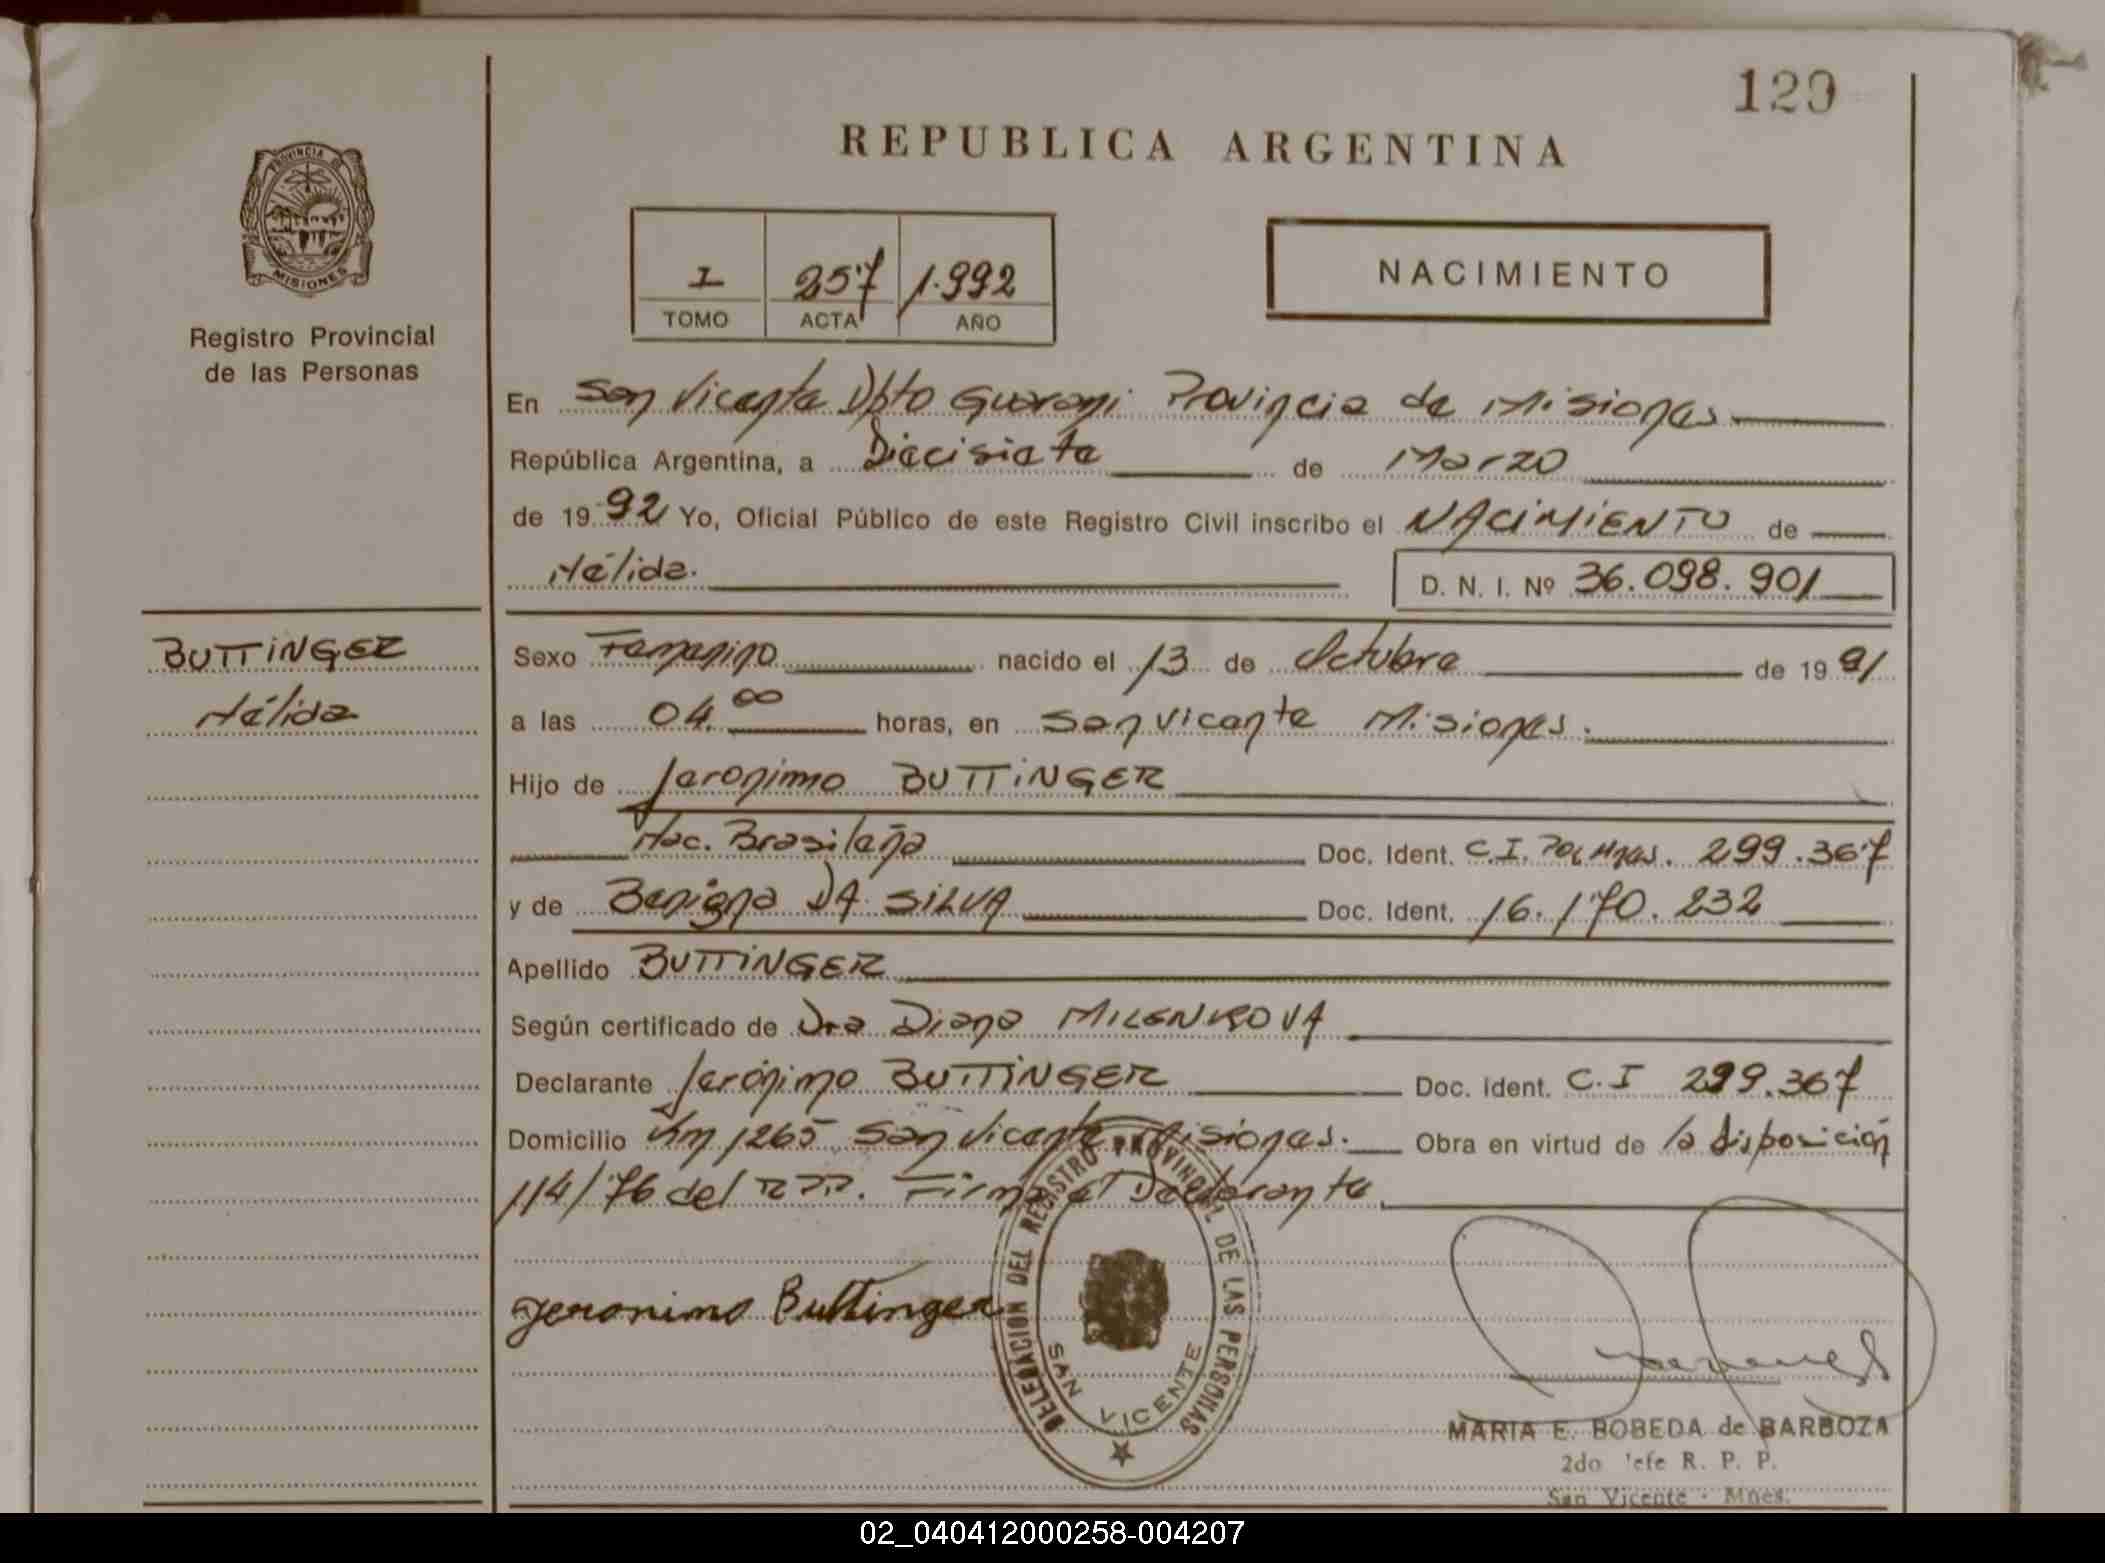 129
REPUBLICA ARGENTINA
PROVINCIA DE MISIONES
Registro Provincial
de las Personas
I 257 1.992
TOMO ACTA AÑO
NACIMIENTO
En San Vicente Dpto Guarani Provincia de Misiones
República Argentina, a Diecisiete de Marzo
de 1992 Yo, Oficial Público de este Registro Civil inscribo el NACIMIENTO de
Nélida.
D. N. I. Nº 36.098.901
BUTTINGER
Nélida
Sexo Femenino nacido el 13 de Octubre de 1991
a las 04.00 horas, en San Vicente Misiones.
Hijo de Jeronimo BUTTINGER
Nac. Brasileña Doc. Ident. C.I. Pol Mnes. 299.367
y de Benigna DA SILVA Doc. Ident. 16.170.232
Apellido BUTTINGER
Según certificado de Dra Diana MILENKOVA
Declarante Jerónimo BUTTINGER Doc. ident. C.I 299.367
Domicilio Km 1265 San Vicente Misiones. Obra en virtud de la disposición
114/76 del R.P.P. Firma el Declarante
Jeronimo Buttinger
DELEGACION DEL REGISTRO PROVINCIAL DE LAS PERSONAS
SAN VICENTE
MARIA E. BOBEDA de BARBOZA
2do Jefe R. P. P.
San Vicente - Mnes.
02_040412000258-004207